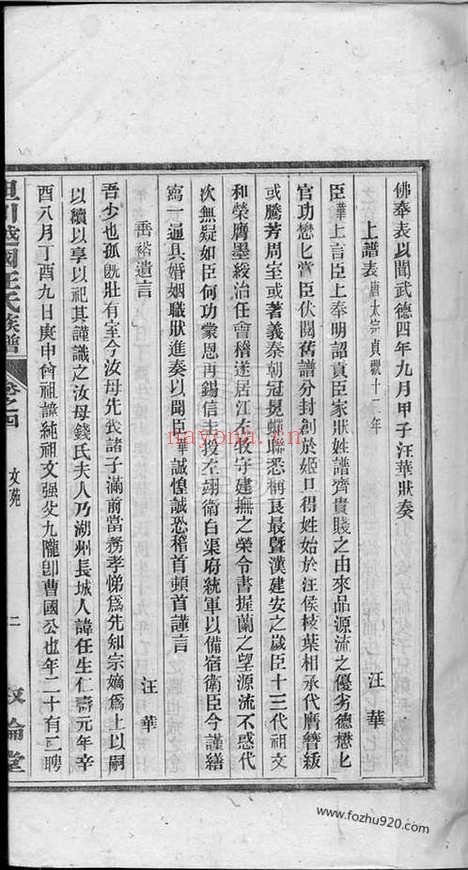 佛奉表以聞武德四年九月甲子汪華狀奏
上譜表 唐太宗貞觀十二年
汪華
臣華上言臣上奉明詔責臣家狀姓譜齊貴賤之由來品源流之優劣德懋匕
官功懋匕賞臣伏閱舊譜分封創於姬旦得姓始於汪侯枝葉相承代膺簪紱
或騰芳周室或著義秦朝冠冕蟬聯悉稱良最暨漢建安之歲臣十三代祖文
和榮膺墨綬治任會稽遂居江左牧守建撫之榮令書握蘭之望源流不惑代
次無疑如臣何功蒙恩再錫信圭投左翊衛白渠府統軍以備宿衛臣今謹繕
寫一通具婚姻職狀進奏以聞臣華誠惶誠恐稽首頓首謹言
垂裕遺言
汪華
吾少也孤旣壯有室今汝母先我諸子滿前當務孝悌爲先知宗嫡爲上以嗣
以續以享以祀其謹識之汝母錢氏夫人乃湖州長城人諱任生仁壽元年辛
酉八月丁酉九日庚申尙祖諱純祖文强父九隴卽曹國公也年二十有二聘
越國汪氏族譜
卷之四
文苑
二
敘倫堂
nayona.cn
www.fozhu920.com